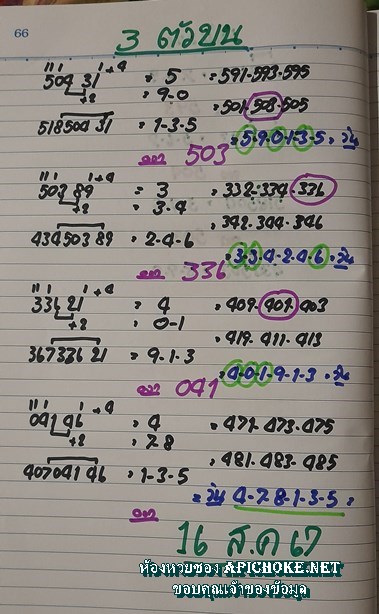 66
3 ตัวบน
504 31 +4 = 5 = 591-593-595
+2 = 9-0
501-503-505
518504 31 = 1-3-5
= 5-9-0-1-3-5 = วิ่น
ออก 503
503 89 +4 = 3 = 332-334-336
+2 = 3-4
342-344-346
434503 89 = 2-4-6
= 3-3-4-2-4-6 = วิ่น
ออก 336
336 21 +4 = 4 = 401-401-403
+2 = 0-1
419-411-413
367336 21 = 9-1-3
= 4-0-1-9-1-3 = วิ่น
ออก 041
041 46 +4 = 4 = 471-473-475
+2 = 7-8
= 481-483-485
407041 46 = 1-3-5
= วิ่น 4-7-8-1-3-5 =
ออก
16 ส.ค 67
ห้องหวยซอง APICHOKE.NET
ขอบคุณเจ้าของข้อมูล